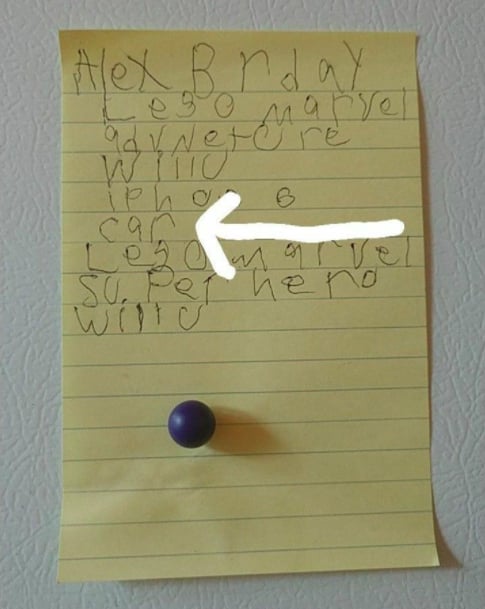 Alex Brday
Lego marvel
advNetUre
WiiiU
iphone 6
car
Lego marvel
Su.Per hero
WiiiU